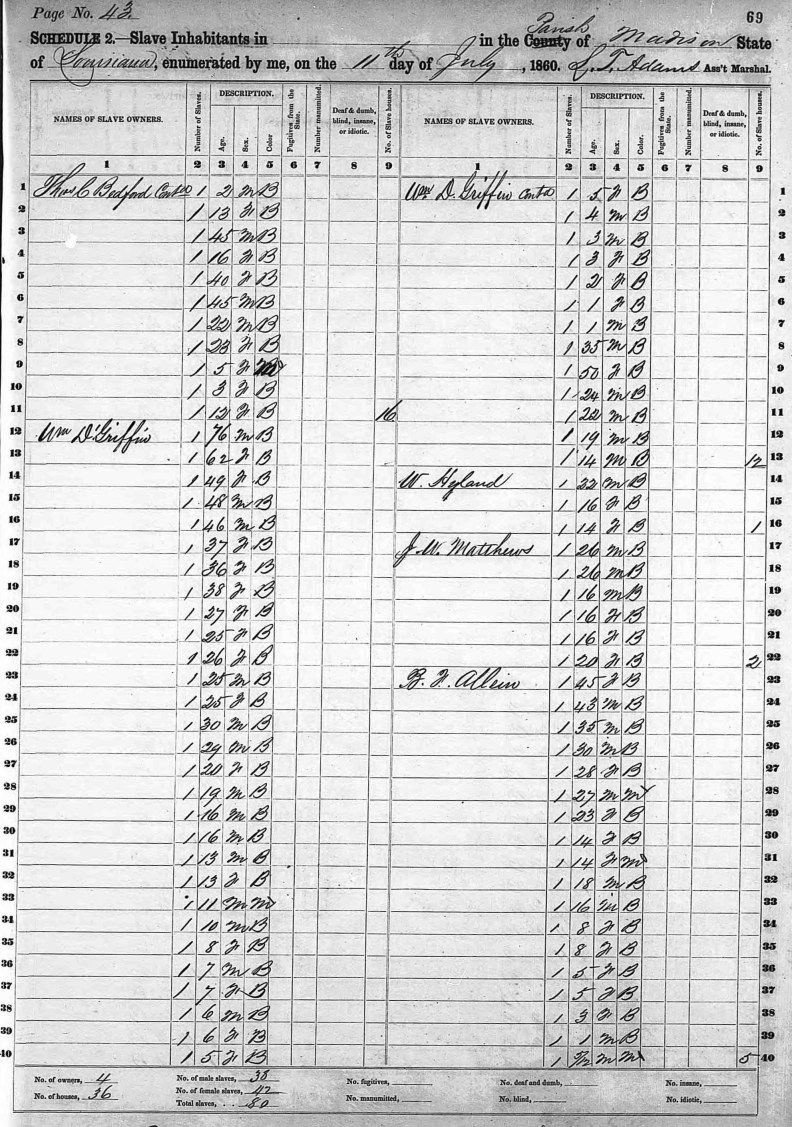 Page No. 43
69
SCHEDULE 2.—Slave Inhabitants in in the County Parish of Madison State
of Louisiana, enumerated by me, on the 11th day of July, 1860. L. T. Adams Ass't Marshal.
NAMES OF SLAVE OWNERS. Number of Slaves. DESCRIPTION. Age. Sex. Color Fugitives from the State. Number manumitted. Deaf & dumb, blind, insane, or idiotic. No. of Slave houses. NAMES OF SLAVE OWNERS. Number of Slaves. DESCRIPTION. Age. Sex. Color. Fugitives from the State. Number manumitted. Deaf & dumb, blind, insane, or idiotic. No. of Slave houses.
1 2 3 4 5 6 7 8 9 1 2 3 4 5 6 7 8 9
1 Thos C Bedford Contd 1 2 M B Wm D. Griffin Contd 1 5 F B 1
2 1 13 F B 1 4 M B 2
3 1 45 M B 1 3 M B 3
4 1 16 F B 1 3 F B 4
5 1 40 F B 1 2 F B 5
6 1 45 M B 1 1 F B 6
7 1 22 M B 1 1 M B 7
8 1 23 F B 1 35 M B 8
9 1 5 F 1 50 F B 9
10 1 3 F B 1 24 M B 10
11 1 12 F B 16 1 22 M B 11
12 Wm D. Griffin 1 76 M B 1 19 M B 12
13 1 62 F B 1 14 M B 12 13
14 1 49 F B W. Hyland 1 22 M B 14
15 1 48 M B 1 16 F B 15
16 1 46 M B 1 14 F B 1 16
17 1 37 F B J. W. Matthews 1 26 M B 17
18 1 36 F B 1 26 M B 18
19 1 38 F B 1 16 M B 19
20 1 27 F B 1 16 F B 20
21 1 25 F B 1 16 F B 21
22 1 26 F B 1 20 F B 2 22
23 1 25 M B B. F. Allein 1 45 F B 23
24 1 25 F B 1 43 M B 24
25 1 30 M B 1 35 M B 25
26 1 29 M B 1 30 M B 26
27 1 20 F B 1 28 F B 27
28 1 19 M B 1 27 M M 28
29 1 16 M B 1 23 F B 29
30 1 16 M B 1 14 F B 30
31 1 13 M B 1 14 F M 31
32 1 13 F B 1 18 M B 32
33 1 11 M M 1 16 M B 33
34 1 10 M B 1 8 F B 34
35 1 8 F B 1 8 F B 35
36 1 7 M B 1 5 F B 36
37 1 7 F B 1 5 F B 37
38 1 6 M B 1 3 F B 38
39 1 6 F B 1 1 M B 39
40 1 5 F B 1 M M 5 40
No. of owners, 4 No. of male slaves, 38 No. fugitives, No. deaf and dumb, No. insane,
No. of houses, 36 No. of female slaves, 42 No. manumitted, No. blind, No. idiotic,
Total slaves, 80